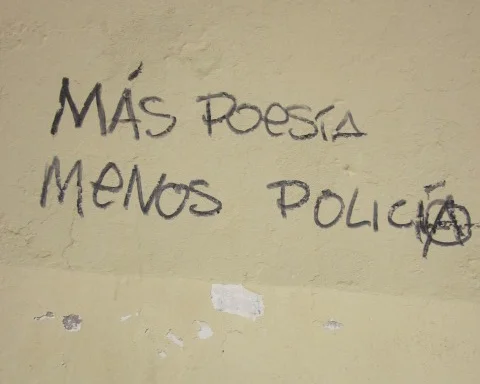 MÁS POESÍA
MENOS POLICÍA